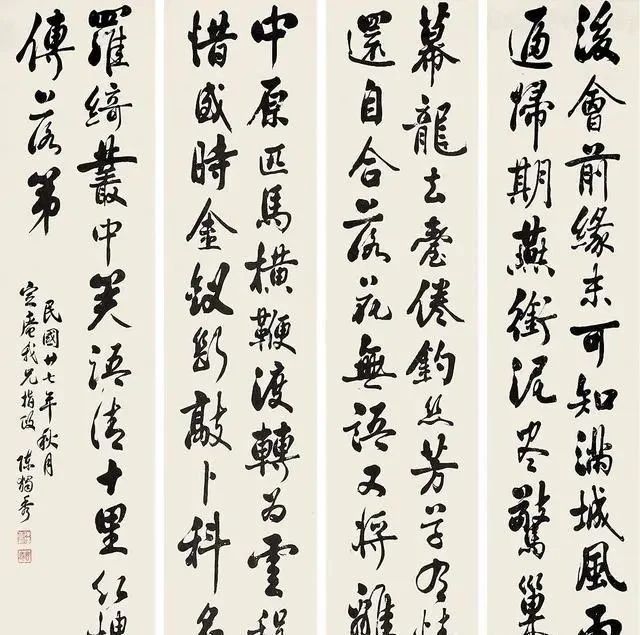 後會前緣未可知滿城風雨
逼歸期燕銜泥尽驚巢
幕龍去臺倦釣絲芳草有情
還自合落花無語又將離
中原匹馬橫鞭渡轉為雲程
惜盛時金釵斷敲卜科名
羅綺叢中笑語清十里紅樓
傳落第
民國廿七年秋月
定庵我兄指政 陳獨秀